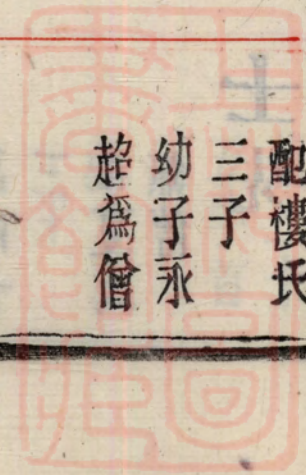 配樓氏
三子
幼子永
超爲僧